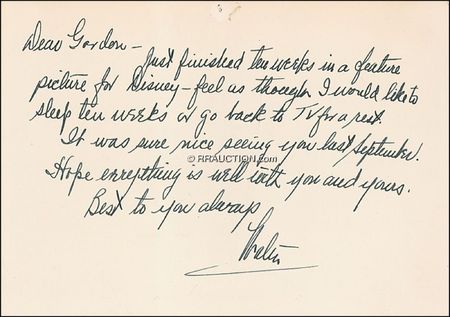 Dear Gordon -
Just finished ten weeks in a feature
picture for Disney - feel as though I would like to
sleep ten weeks or go back to TV for a rest.
It was sure nice seeing you last September.
© RRAUCTION.COM
Hope everything is well with you and yours.
Best to you always